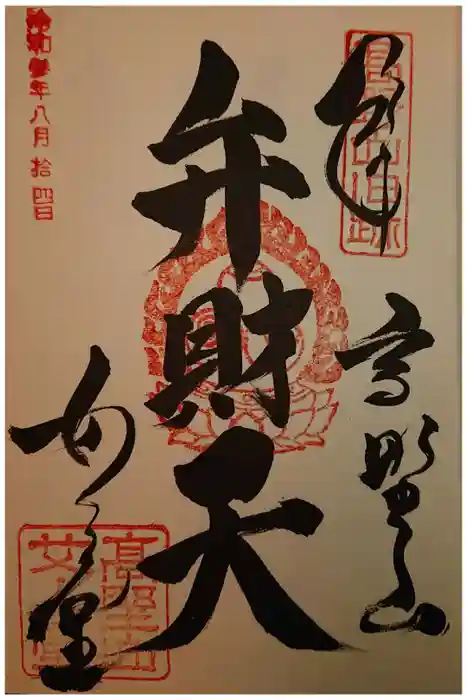 奉拝
高野山
弁財天
女人堂
令和参年八月拾四日
高野山
女人堂